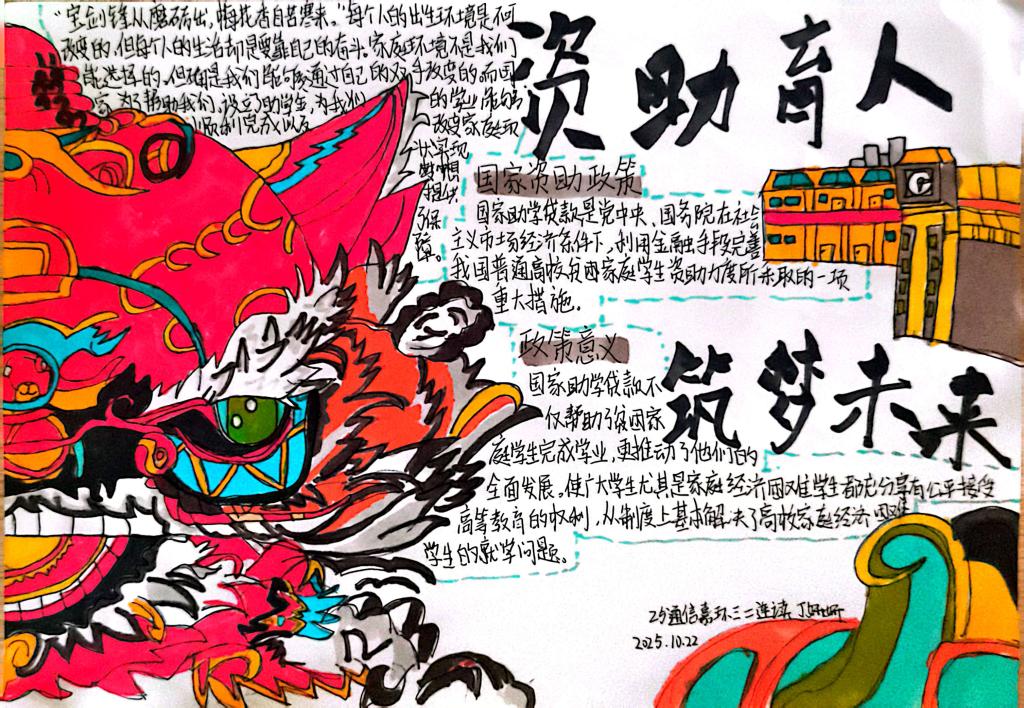 "宝剑锋从磨砺出，梅花香自苦寒来。"每个人的出生环境是不可
改变的，但每个人的生活却是要靠自己的奋斗。家庭环境不是我们
能选择的，但确是我们能够通过自己的双手改变的，而国
家为了帮助我们，设立助学
的学业能够
顺利完成以及
改变家庭现
状实现
梦想
提供
了保
障。
资助育人
国家资助政策
国家助学贷款是党中央、国务院在社会
主义市场经济条件下，利用金融手段完善
我国普通高校贫困家庭学生资助力度所采取的一项
重大措施。
政策意义
筑梦未来
国家助学贷款不
仅帮助了贫困家
庭学生完成学业，更推动了他们的
全面发展，使广大学生尤其是家庭经济困难学生都充分享有公平接受
高等教育的权利，从制度上基本解决了高校家庭经济困难
学生的就学问题。
25通信嘉环三二连读
2025.10.22